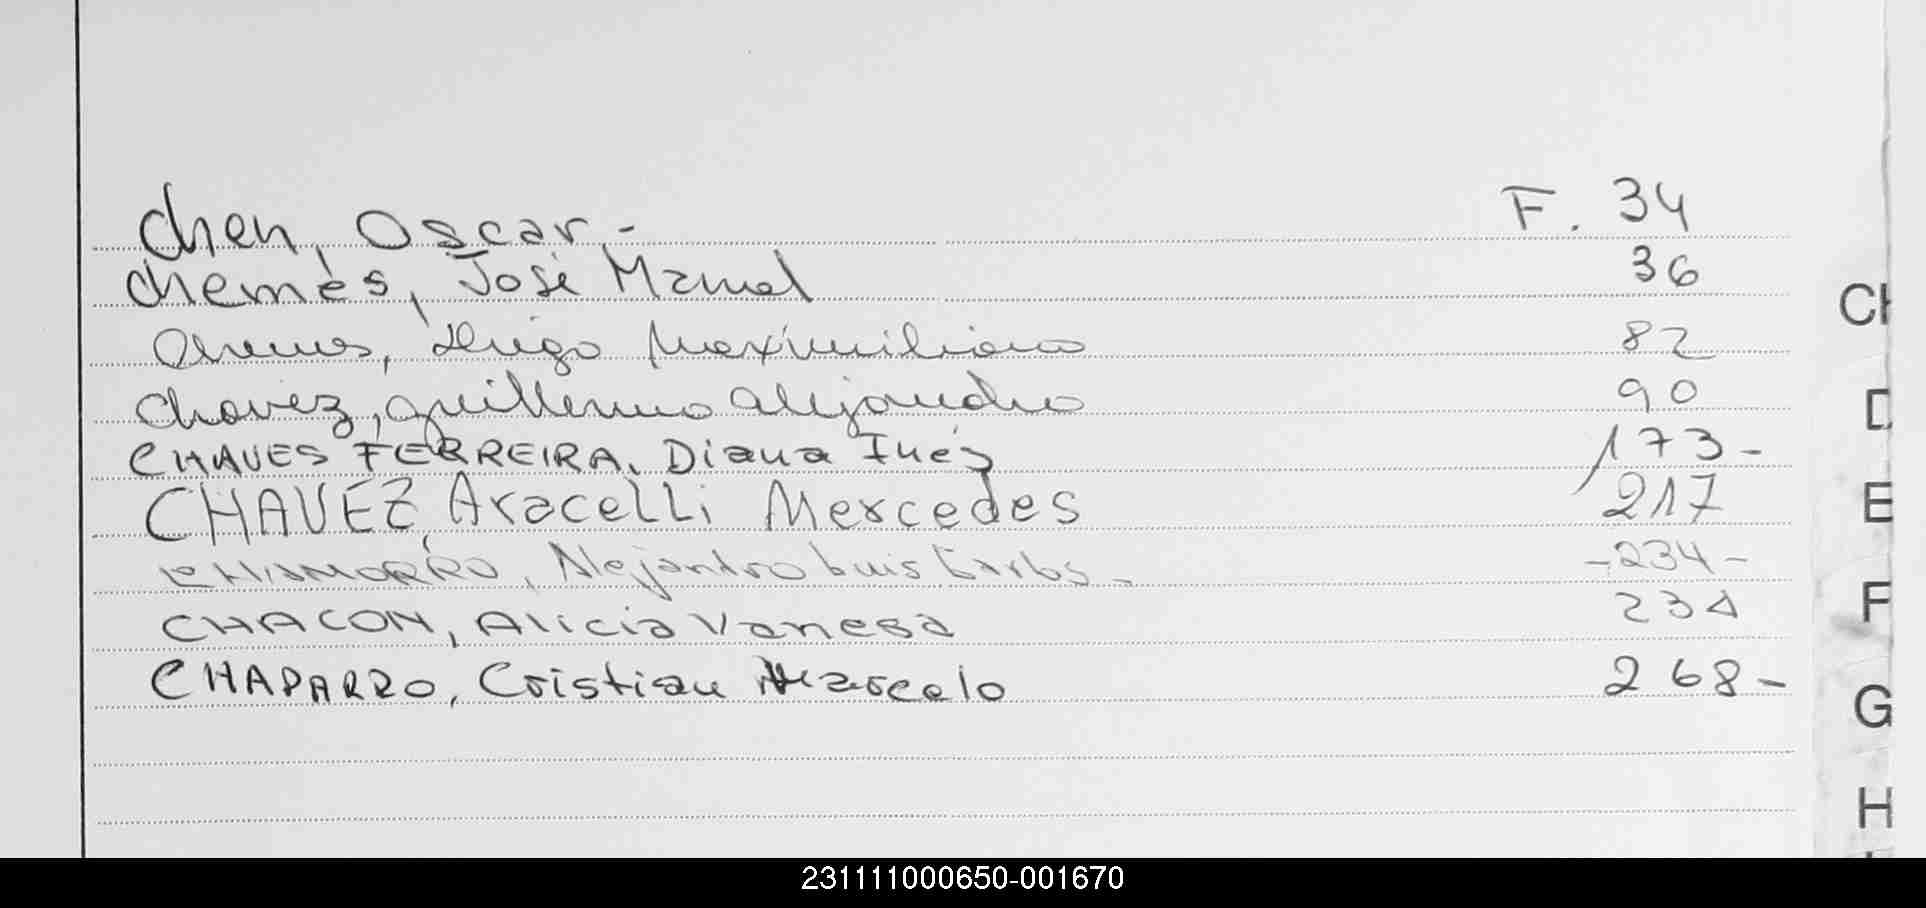 Chen, Oscar.- F. 34
Chemes, José Manuel 36
Chemes, Hugo Maximiliano 82
Chavez, Guillermo Alejandro 90
CHAVES FERREIRA, Diana Inés 173-
CHAVEZ, Aracelli Mercedes 217
CHAMORRO, Alejandro Luis Carlos - -234-
CHACON, Alicia Vanesa 234
CHAPARRO, Cristian Marcelo 268-
CH
D
E
F
G
H
231111000650-001670